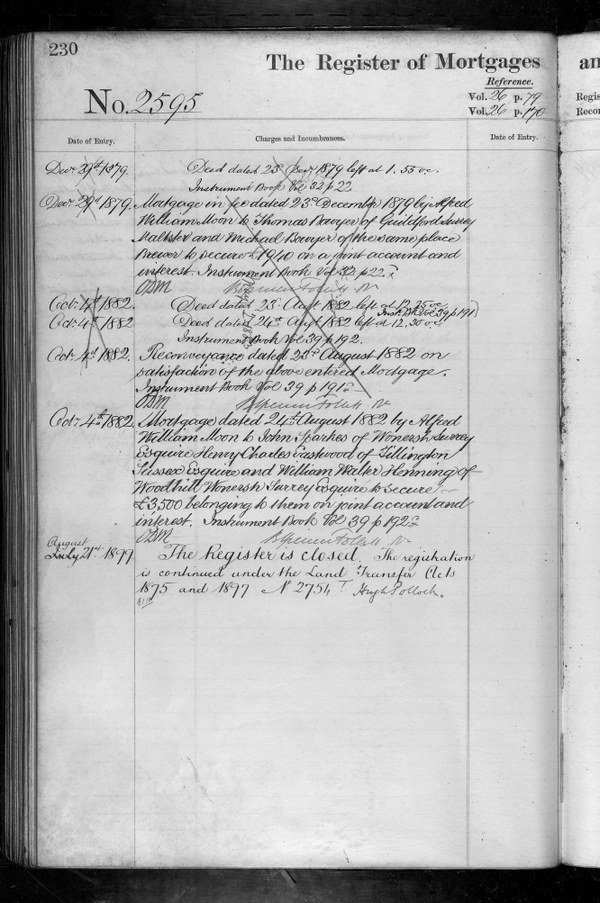 230
The Register of Mortgages
an
Reference.
No. 2595
Vol. 26 p. 79
Vol. 26 p. 170
Regis
Recor
Date of Entry.
Charges and Incumbrances.
Date of Entry.
Decr 29th 1879.
Deed dated 23d Decr 1879 left at 1.55 oc.
Instrument Book Vol 32 p 22
Decr 29th 1879.
Mortgage in fee dated 23rd December 1879 by Alfred
William Moon to Thomas Bowyer of Guildford Surrey
Maltster and Michael Bowyer of the same place
Brewer to secure £1940 on a joint account and
interest. Instrument Book Vol 32 p 22.
Octr 4th 1882.
Deed dated 23d Augt 1882 left at 12.25 oc.
Inst Bk Vol 39 p 191
Octr 4th 1882
Deed dated 24th Augt 1882 left at 12.30 oc.
Instrument Book Vol 39 p 192.
Octr 4th 1882.
Reconveyance dated 23rd August 1882 on
satisfaction of the above entered Mortgage.
Instrument Book Vol 39 p 191
Octr 4th 1882
Mortgage dated 24th August 1882 by Alfred
William Moon to John Sparkes of Wonersh Surrey
Esquire Henry Charles Eastwood of Tillington
Sussex Esquire and William Walter Henning of
Woodhill Wonersh Surrey Esquire to secure
£3,500 belonging to them on joint account and
interest. Instrument Book Vol 39 p 192
August
July 21st 1899
The Register is closed. The registration
is continued under the Land Transfer Acts
1875 and 1897 No 2754 Hugh Pollock.